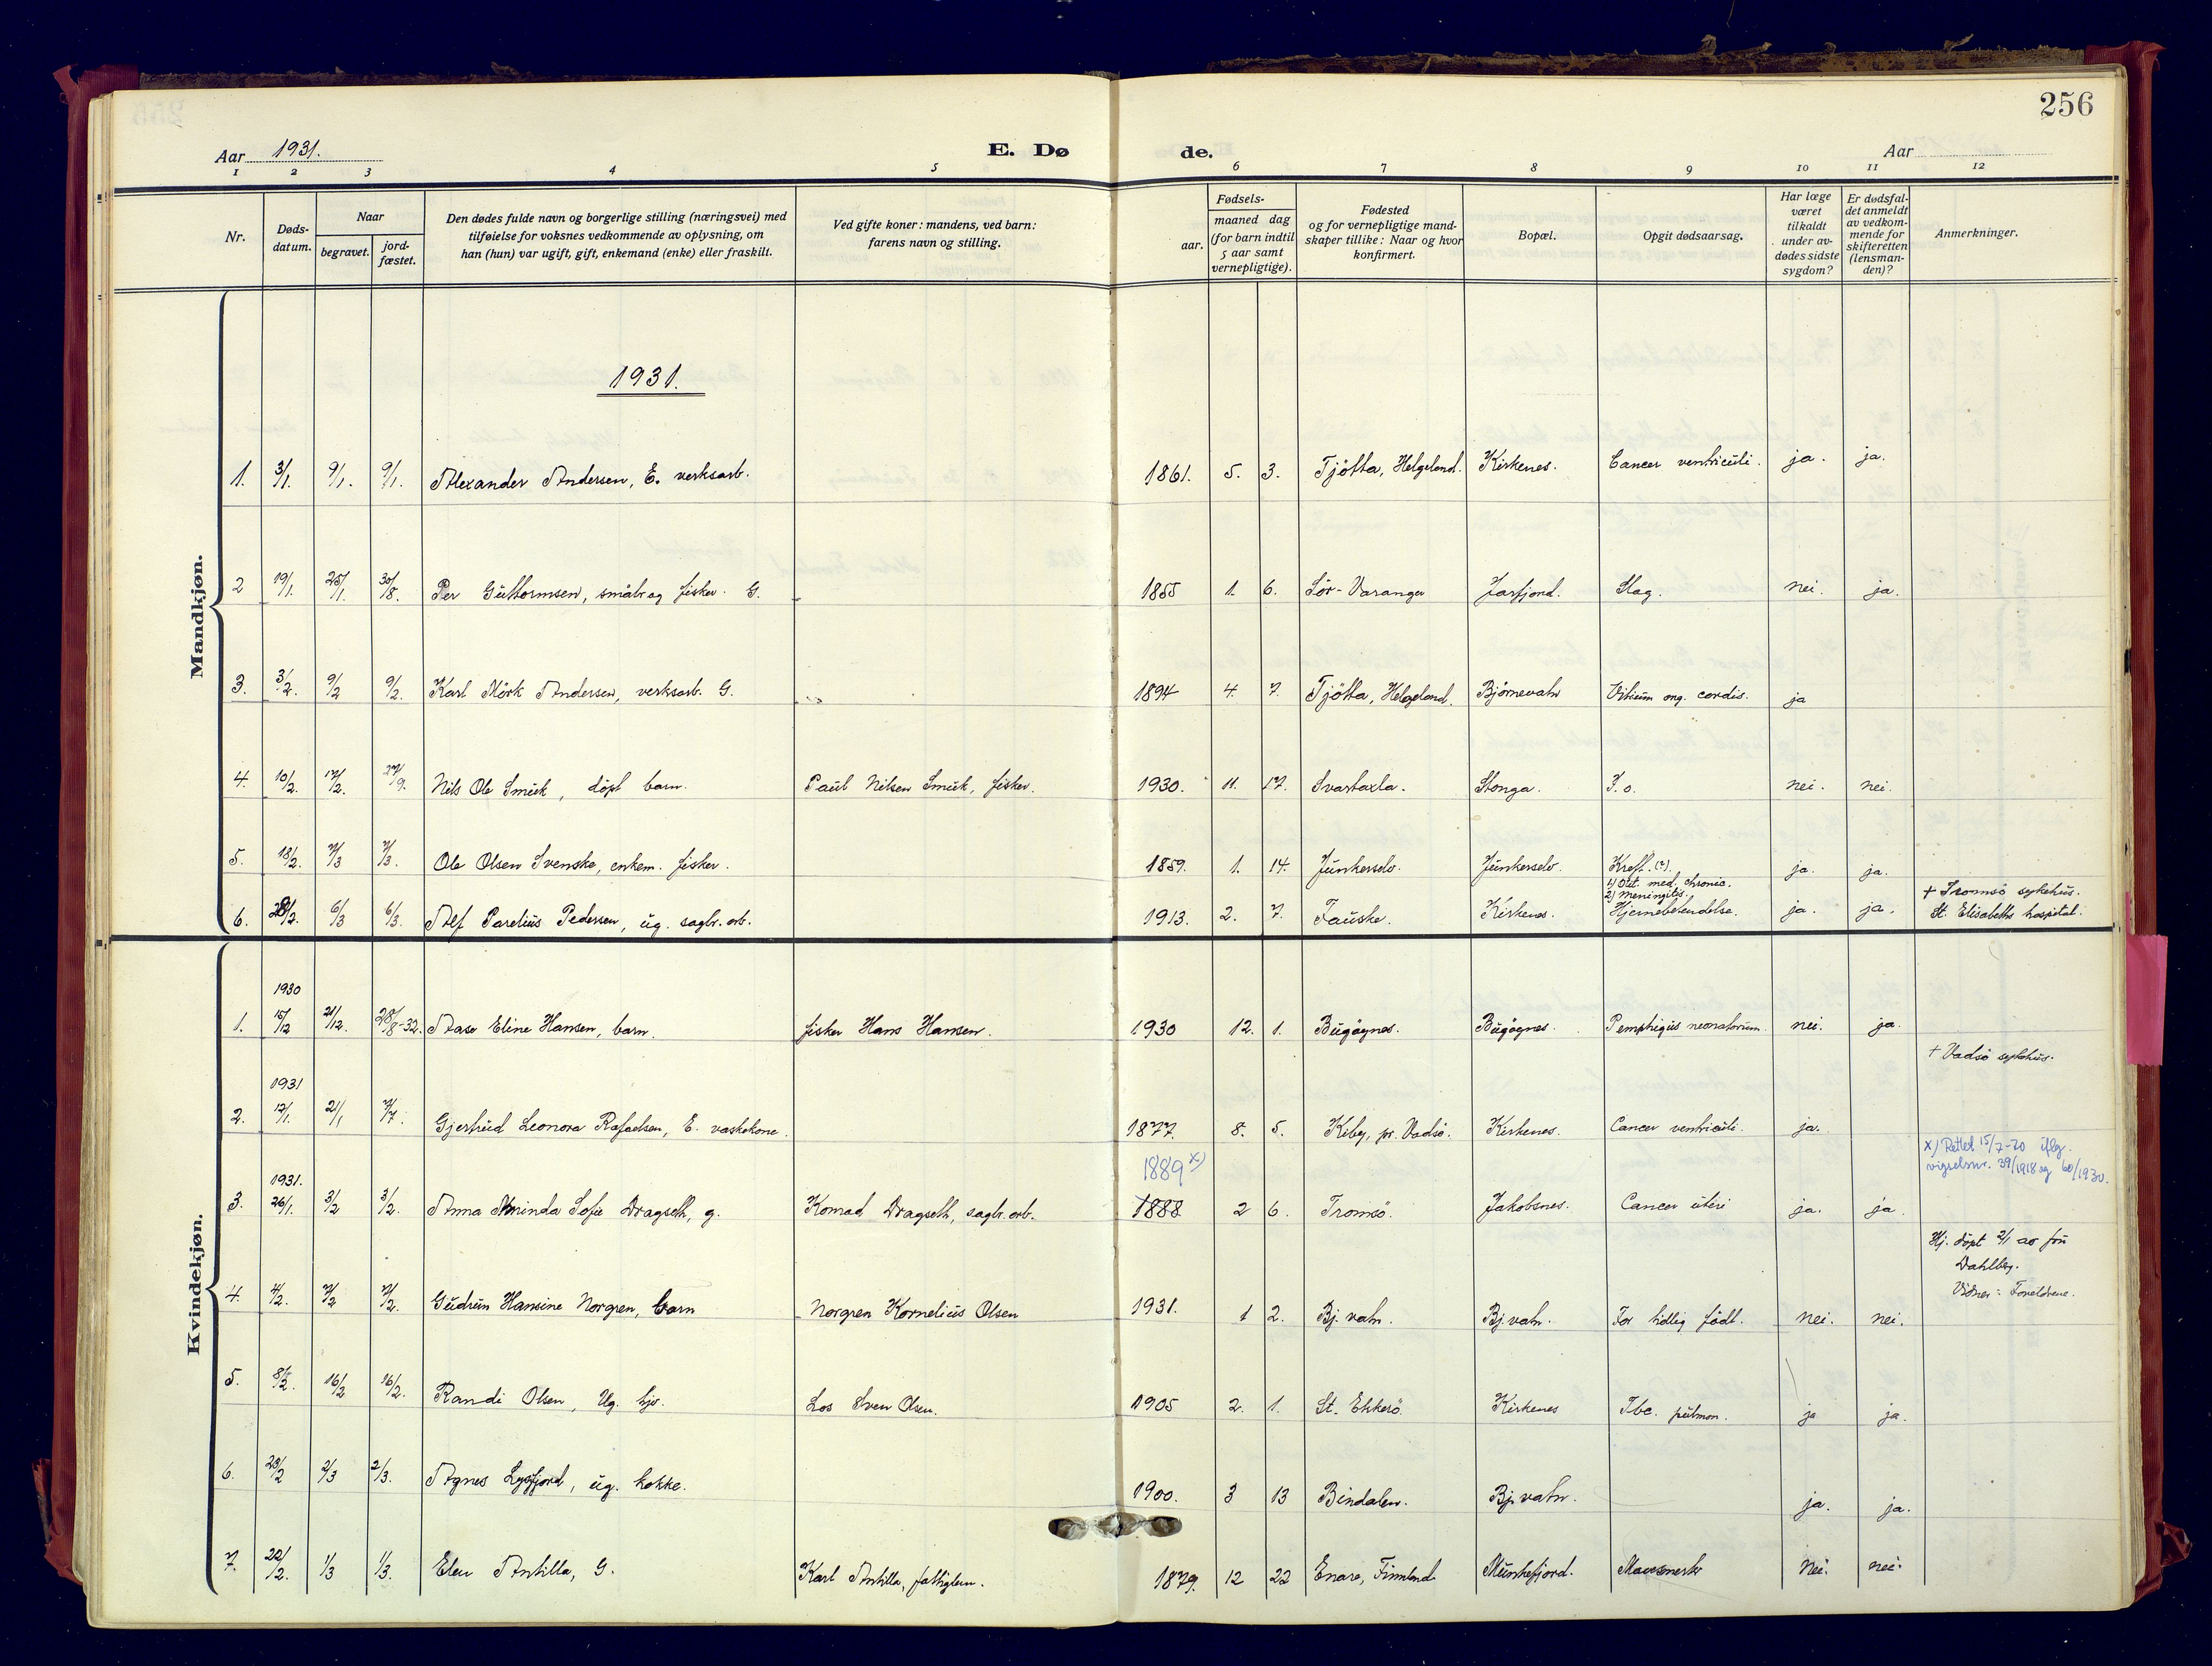 256
Aar 1931.
E. Dø
de.
Aar
1 2 3 4 5 6 7 8 9 10 11 12
Nr.
Døds-
datum.
Naar
begravet.
jord-
fæstet.
Den dødes fulde navn og borgerlige stilling (næringsvei) med
tilføielse for voksnes vedkommende av oplysning, om
han (hun) var ugift, gift, enkemand (enke) eller fraskilt.
Ved gifte koner: mandens, ved barn:
farens navn og stilling.
Fødsels-
aar.
maaned dag
(for barn indtil
5 aar samt
vernepligtige).
Fødested
og for vernepligtige mand-
skaper tillike: Naar og hvor
konfirmert.
Bopæl.
Opgit dødsaarsag.
Har læge
været
tilkaldt
under av-
dødes sidste
sygdom?
Er dødsfal-
det anmeldt
av vedkom-
mende for
skifteretten
(lensman-
den)?
Anmerkninger.
Mandkjøn.
1931.
1. 3/1. 9/1. 9/1. Alexander Andersen, E. verksarb. 1861. 5. 3. Tjötta, Helgeland. Kirkenes. Cancer ventriculi. ja. ja.
2 19/1. 25/1. 30/8. Per Guttormsen, småbr og fisker. G. 1855 1. 6. Sör-Varanger Jarfjord. Slag. nei. ja.
3. 3/2. 9/2 9/2. Karl Mörk Andersen, verksarb. G. 1894 4. 7. Tjötta, Helgeland. Björnevatn Vitium org. cordis. ja
4. 10/2. 17/2. Nils Ole Smuk, döpt barn. Paul Nilsen Smuk, fisker. 1930. 11. 17. Svartaxla. Stonga. I. o. nei. nei.
5. 18/2. 7/3 7/3. Ole Olsen Svenske, enkem. fisker. 1859. 1. 14. Junkerselv. Junkerselv. Kreft. (?). ja. ja.
1) Otit. med. chronic.
2) Meningitis.
+ Tromsö sykehus.
6. 28/2. 6/3 6/3. Alf Parelius Pedersen, ug. sagbr. arb. 1913. 2. 7. Fauske. Kirkenes. Hjernebetendelse. ja. ja. St. Elisabeths hospital.
Kvindekjøn.
1930
1. 15/12 21/12. 28/8-32. Aase Eline Hansen, barn. fisker Hans Hansen. 1930 12. 1. Bugöynes. Bugöynes. Pemphigus neonatorum. nei. ja.
+ Vadsö sykehus.
1931
2. 12/1. 21/1 7/7. Gjertrud Leonora Rafaelsen, E. vaskekone. 1877. 8. 5. Kiby, pr. Vadsö. Kirkenes. Cancer ventriculi. ja.
1889 x)
x) Rettet 15/7-70 iflg.
vigselsnr. 39/1918 og 60/1930.
1931.
3. 26/1. 3/2 3/2. Anna Aminda Sofie Dragseth, g. Konrad Dragseth, sagbr. arb. 1888 2 6. Tromsö. Jakobsnes. Cancer uteri ja. ja.
Hj. döpt 2/1 av fru
Dahlberg.
Vidner: Foreldrene.
4. 4/2. 7/2 7/2. Gudrun Hansine Norgren, barn Norgren Kornelius Olsen 1931. 1 2. Bj. vatn. Bj. vatn. For tidlig född. nei. nei.
5. 8/2. 16/2 16/2. Randi Olsen, Ug. hjv. Los Sven Olsen. 1905 2. 1. St. Ekkerö. Kirkenes Tbc. pulmon. ja ja.
6. 23/2 2/3 2/3. Agnes Lysfjord, ug. kokke. 1900. 3 13 Bindalen. Bj. vatn. ja. ja.
7. 22/2. 1/3 1/3. Elen Antilla, G. Karl Antilla, fattiglem. 1879. 12 22 Enare, Finnland. Munkefjord. Mavesmerter nei. nei.